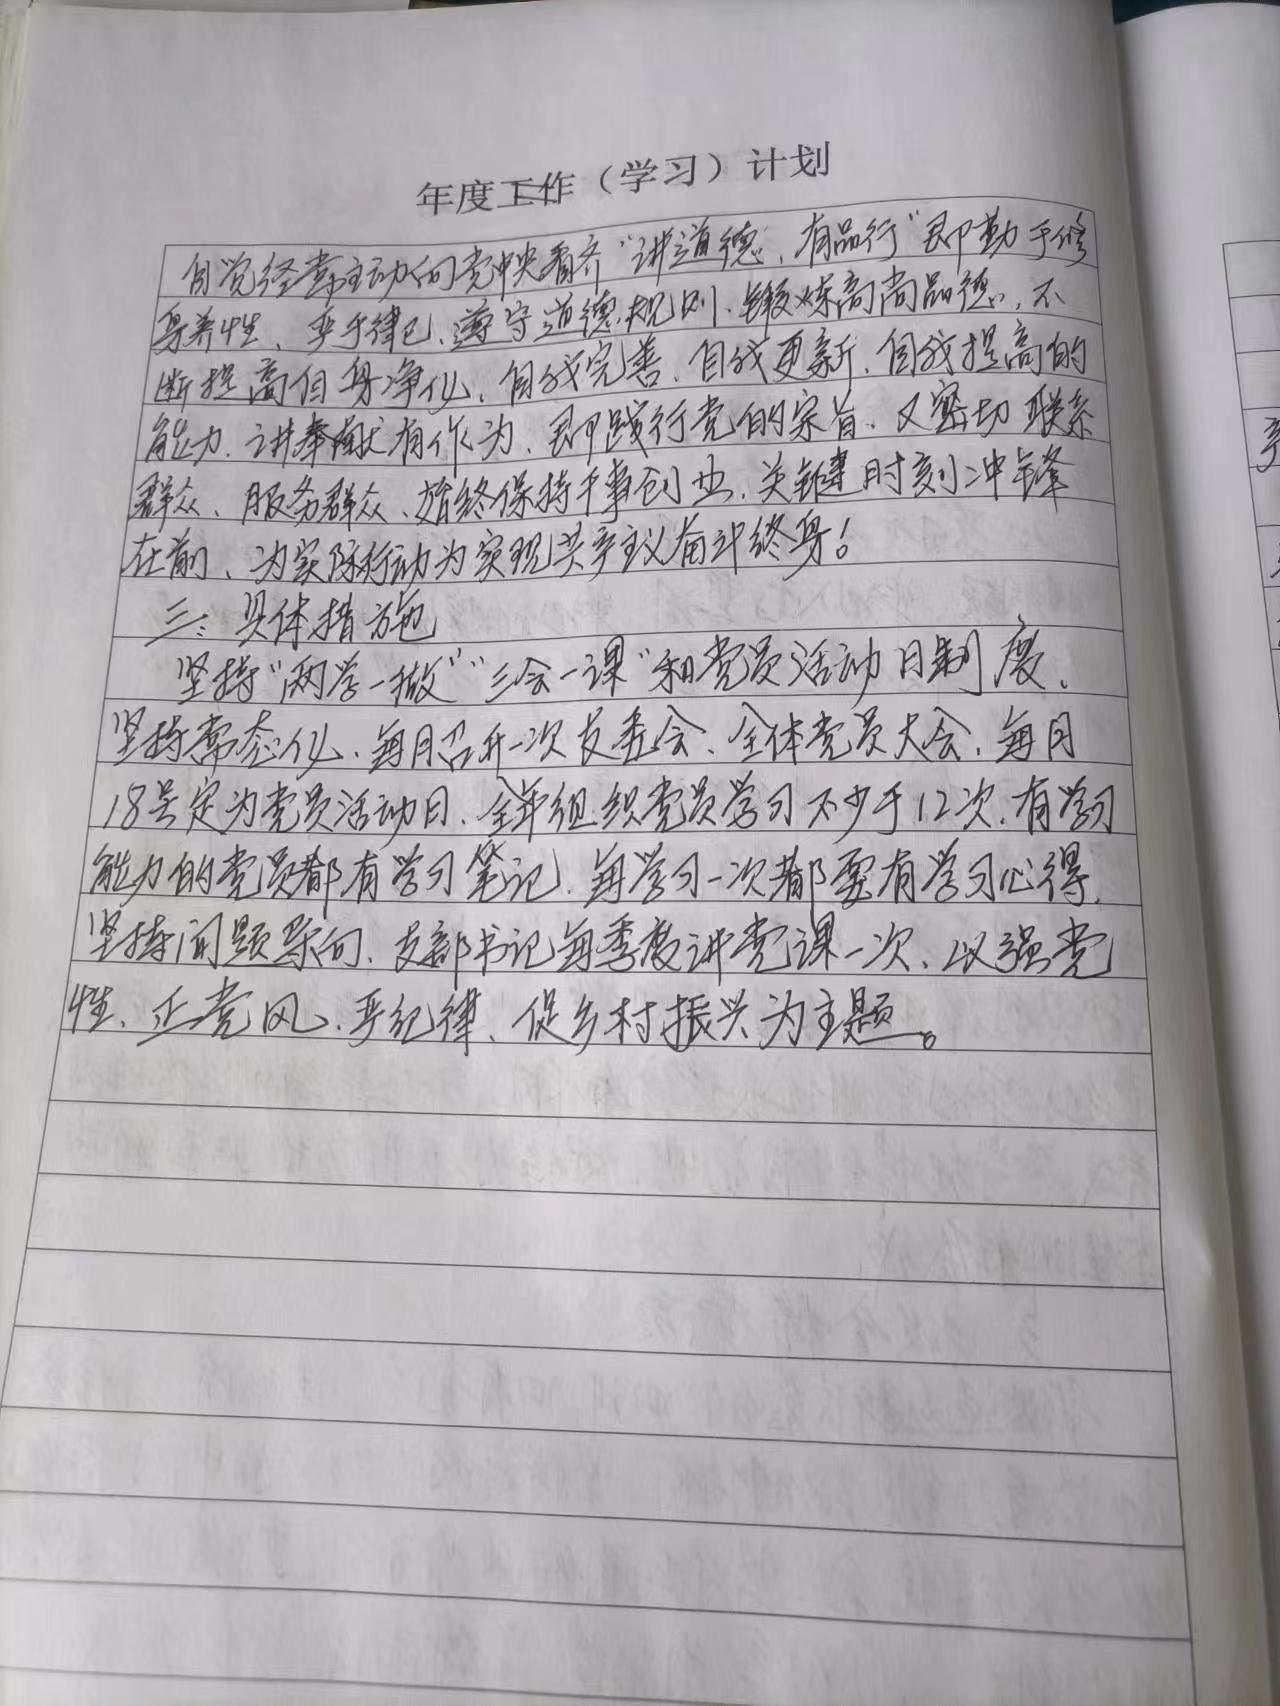 年度工作（学习）计划
自觉经常主动向党中央看齐“讲道德、有品行”即勤于修
身养性、严于律己、遵守道德规则、锻炼高尚品德、不
断提高自身净化、自我完善、自我更新、自我提高的
能力、讲奉献有作为、即践行党的宗旨、又密切联系
群众、服务群众、始终保持干事创业、关键时刻冲锋
在前、为实际行动为实现共产主义奋斗终身！
三：具体措施
坚持“两学一做”“三会一课”和党员活动日制度、
坚持常态化、每月召开一次支委会、全体党员大会、每月
18号定为党员活动日、全年组织党员学习不少于12次、有学习
能力的党员都有学习笔记、每学习一次都要有学习心得、
坚持问题导向、支部书记每季度讲党课一次、以强党
性、正党风、严纪律、促乡村振兴为主题。